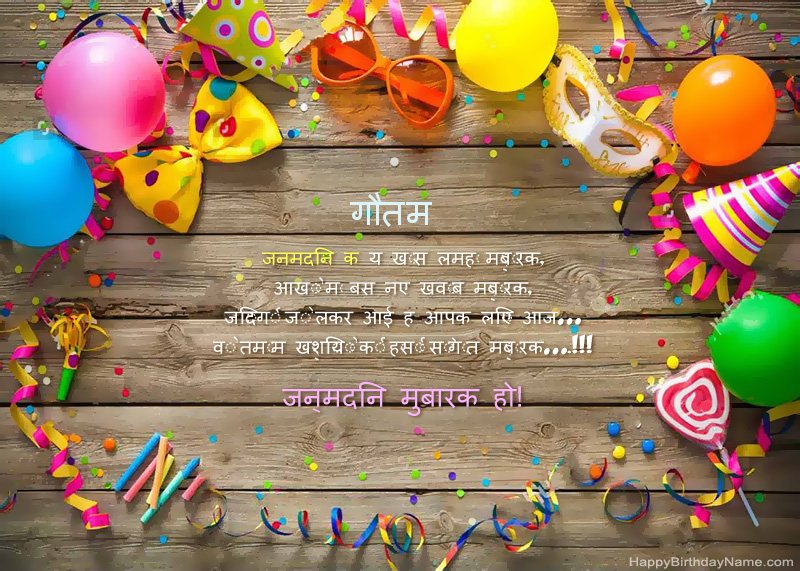 गौतम
जनमदिन क य खास लमहा मबारक,
आखों मे बस नए खवाब मबारक,
जिदगी जो लेकर आई ह आपक लिए आज...
वो तमाम खशियों की हसी सौगात मबारक...!!!
जन्मदिन मुबारक हो!
HappyBirthdayName.com